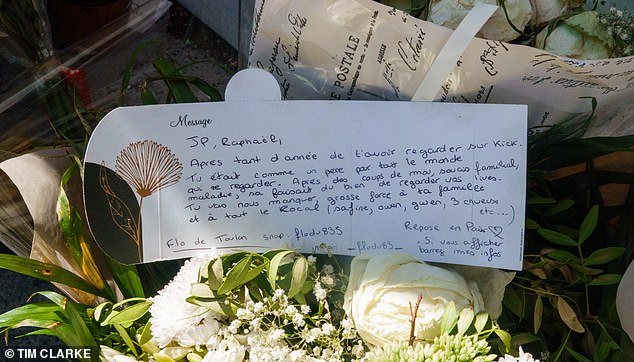 POSTALE
Message
JP, Raphaël,
Après tant d'année de t'avoir regarder sur Kick.
Tu était comme un père par tout le monde
qui se regarder. Après des coups de mou, soucis familial,
maladies, na faisait du bien de regarder vos lives.
Tu vas nous manquer, grosse force à ta famille
et à tout le Rocal (safine, owen, gwen, 3 cheveux
etc...)
Repose en Paix ♡
Flo de Toulon snap: flodu83S
_flodu83_
Si vous afficher
barrez mes infos
© TIM CLARKE